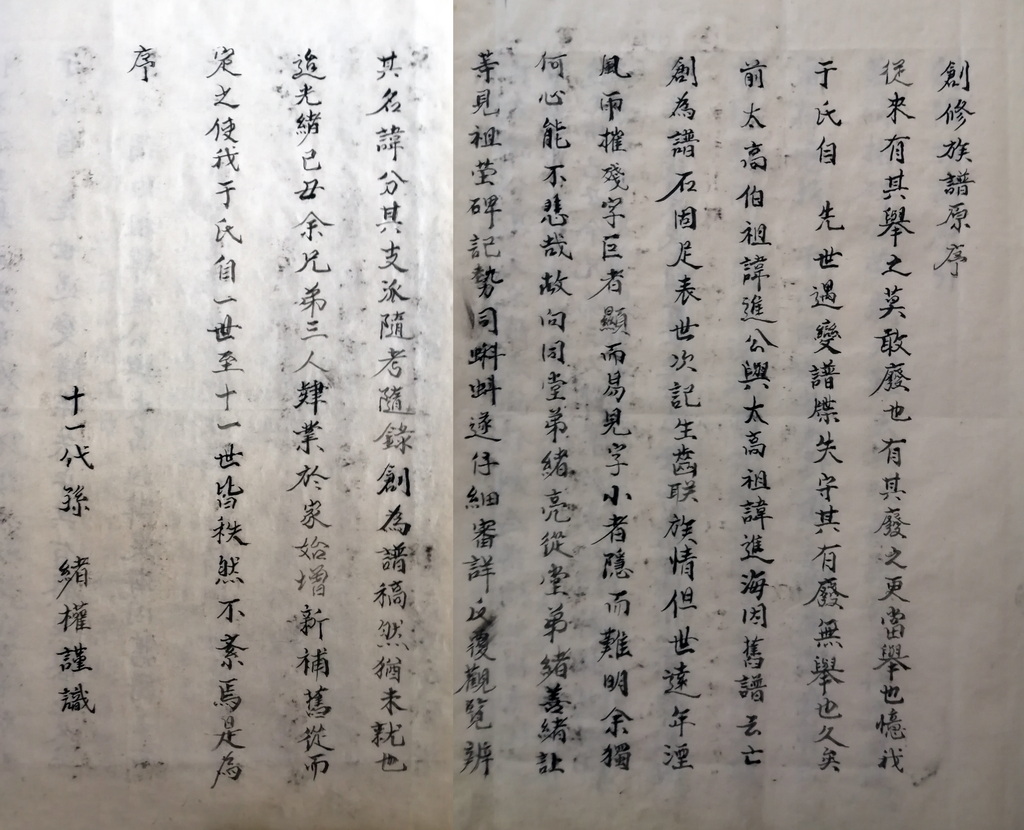 創修族譜原序
從來有其舉之莫敢廢也有其廢之更當舉也憶我
于氏自 先世遇變譜牒失守其有廢無舉也久矣
前太高伯祖諱進公與太高祖諱進海因舊譜云亡
創為譜石固足表世次記生齒联族情但世遠年湮
風雨摧殘字巨者顯而易見字小者隱而難明余獨
何心能不悲哉故向同堂弟緒亮從堂弟緒善緒訨
等見祖塋碑記勢同蝌蚪遂仔細審詳反覆觀覽辨
其名諱分其支派隨考隨錄創為譜稿然猶未就也
迨光緒己丑余兄弟三人肄業於家始增新補舊從而
定之使我于氏自一世至十一世皆秩然不紊焉是為
序
十一代孫 緒權謹識